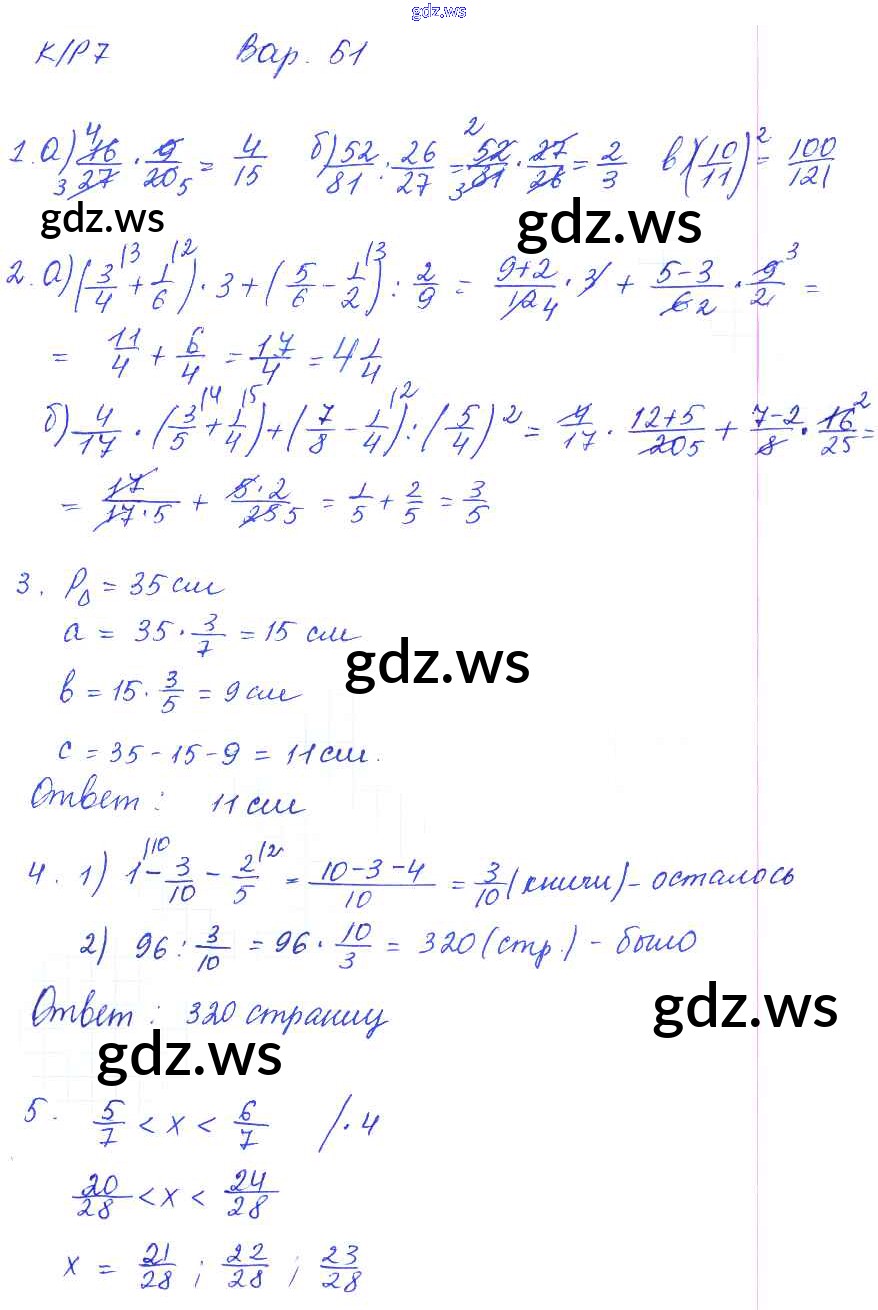 gdz.ws
К/Р7 Вар. Б1
1. а) 16/27 · 9/20 = 4/15 б) 52/81 : 26/27 = 52/81 · 27/26 = 2/3 в) (10/11)² = 100/121
gdz.ws gdz.ws
2. а) (3/4 + 1/6) · 3 + (5/6 - 1/2) : 2/9 = (9+2)/12 · 3 + (5-3)/6 · 9/2 =
= 11/4 + 6/4 = 17/4 = 4 1/4
б) 4/17 · (3/5 + 1/4) + (7/8 - 1/4) : (5/4)² = 4/17 · (12+5)/20 + (7-2)/8 · 16/25 =
= 17/(17·5) + (5·2)/25 = 1/5 + 2/5 = 3/5
3. P△ = 35 см
a = 35 · 3/7 = 15 см
gdz.ws
в = 15 · 3/5 = 9 см
с = 35 - 15 - 9 = 11 см.
Ответ: 11 см
4. 1) 1 - 3/10 - 2/5 = (10-3-4)/10 = 3/10 (книги) - осталось
2) 96 : 3/10 = 96 · 10/3 = 320 (стр.) - было
Ответ: 320 страниц
gdz.ws
gdz.ws
5. 5/7 < x < 6/7 /· 4
20/28 < x < 24/28
x = 21/28 ; 22/28 ; 23/28